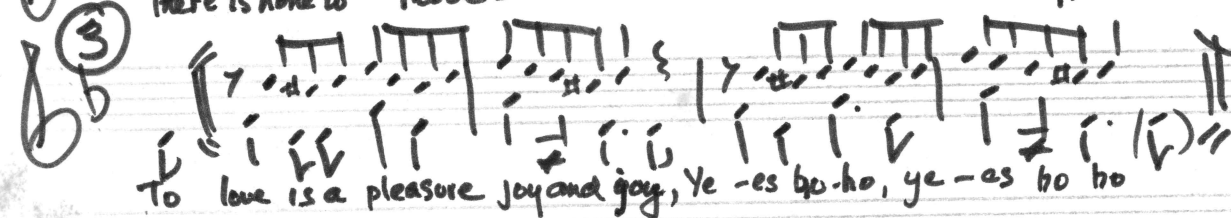 There is none to
3
To love is a pleasure joy and joy, Ye-es ho-ho, ye-es ho ho